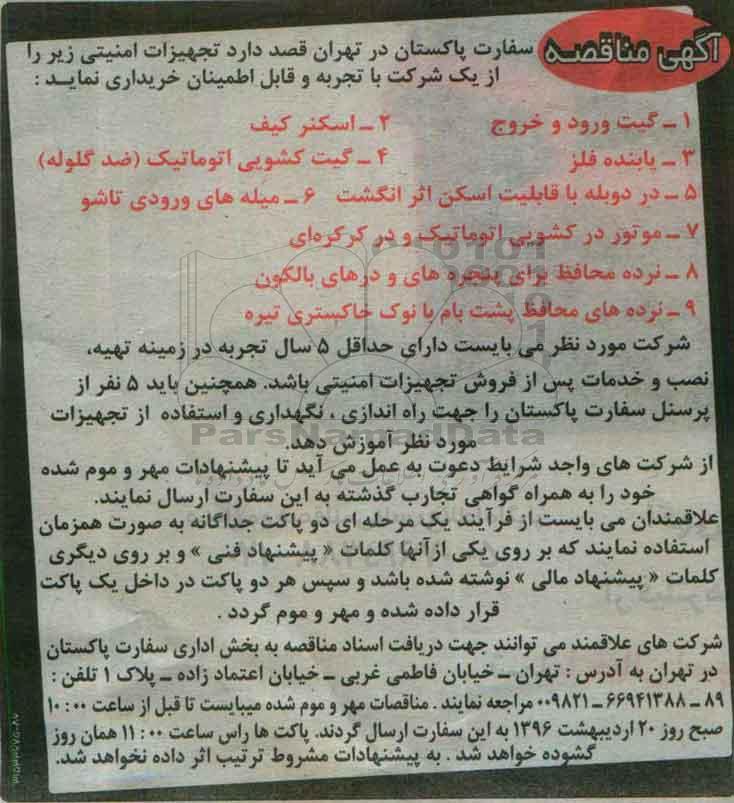 آگهی مناقصه
سفارت پاکستان در تهران قصد دارد تجهیزات امنیتی زیر را
از یک شرکت با تجربه و قابل اطمینان خریداری نماید :
۱ ـ گیت ورود و خروج ۲ ـ اسکنر کیف
۳ ـ یابنده فلز ۴ ـ گیت کشویی اتوماتیک (ضد گلوله)
۵ ـ در دوبله با قابلیت اسکن اثر انگشت ۶ ـ میله های ورودی تاشو
۷ ـ موتور در کشویی اتوماتیک و در کرکره‌ای
۸ ـ نرده محافظ برای پنجره های و درهای بالکون
۹ ـ نرده های محافظ پشت بام با نوک خاکستری تیره
شرکت مورد نظر می بایست دارای حداقل ۵ سال تجربه در زمینه تهیه،
نصب و خدمات پس از فروش تجهیزات امنیتی باشد. همچنین باید ۵ نفر از
پرسنل سفارت پاکستان را جهت راه اندازی ، نگهداری و استفاده از تجهیزات
مورد نظر آموزش دهد.
ParsNamadData
از شرکت های واجد شرایط دعوت به عمل می آید تا پیشنهادات مهر و موم شده
خود را به همراه گواهی تجارب گذشته به این سفارت ارسال نمایند.
علاقمندان می بایست از فرآیند یک مرحله ای دو پاکت جداگانه به صورت همزمان
استفاده نمایند که بر روی یکی ازآنها کلمات « پیشنهاد فنی » و بر روی دیگری
کلمات « پیشنهاد مالی » نوشته شده باشد و سپس هر دو پاکت در داخل یک پاکت
قرار داده شده و مهر و موم گردد .
شرکت های علاقمند می توانند جهت دریافت اسناد مناقصه به بخش اداری سفارت پاکستان
در تهران به آدرس : تهران ـ خیابان فاطمی غربی ـ خیابان اعتماد زاده ـ پلاک ۱ تلفن :
۸۹ ـ ۶۶۹۴۱۳۸۸ ـ ۰۰۹۸۲۱ مراجعه نمایند . مناقصات مهر و موم شده میبایست تا قبل از ساعت ۱۰:۰۰
صبح روز ۲۰ اردیبهشت ۱۳۹۶ به این سفارت ارسال گردند. پاکت ها راس ساعت ۱۱:۰۰ همان روز
گشوده خواهد شد . به پیشنهادات مشروط ترتیب اثر داده نخواهد شد.